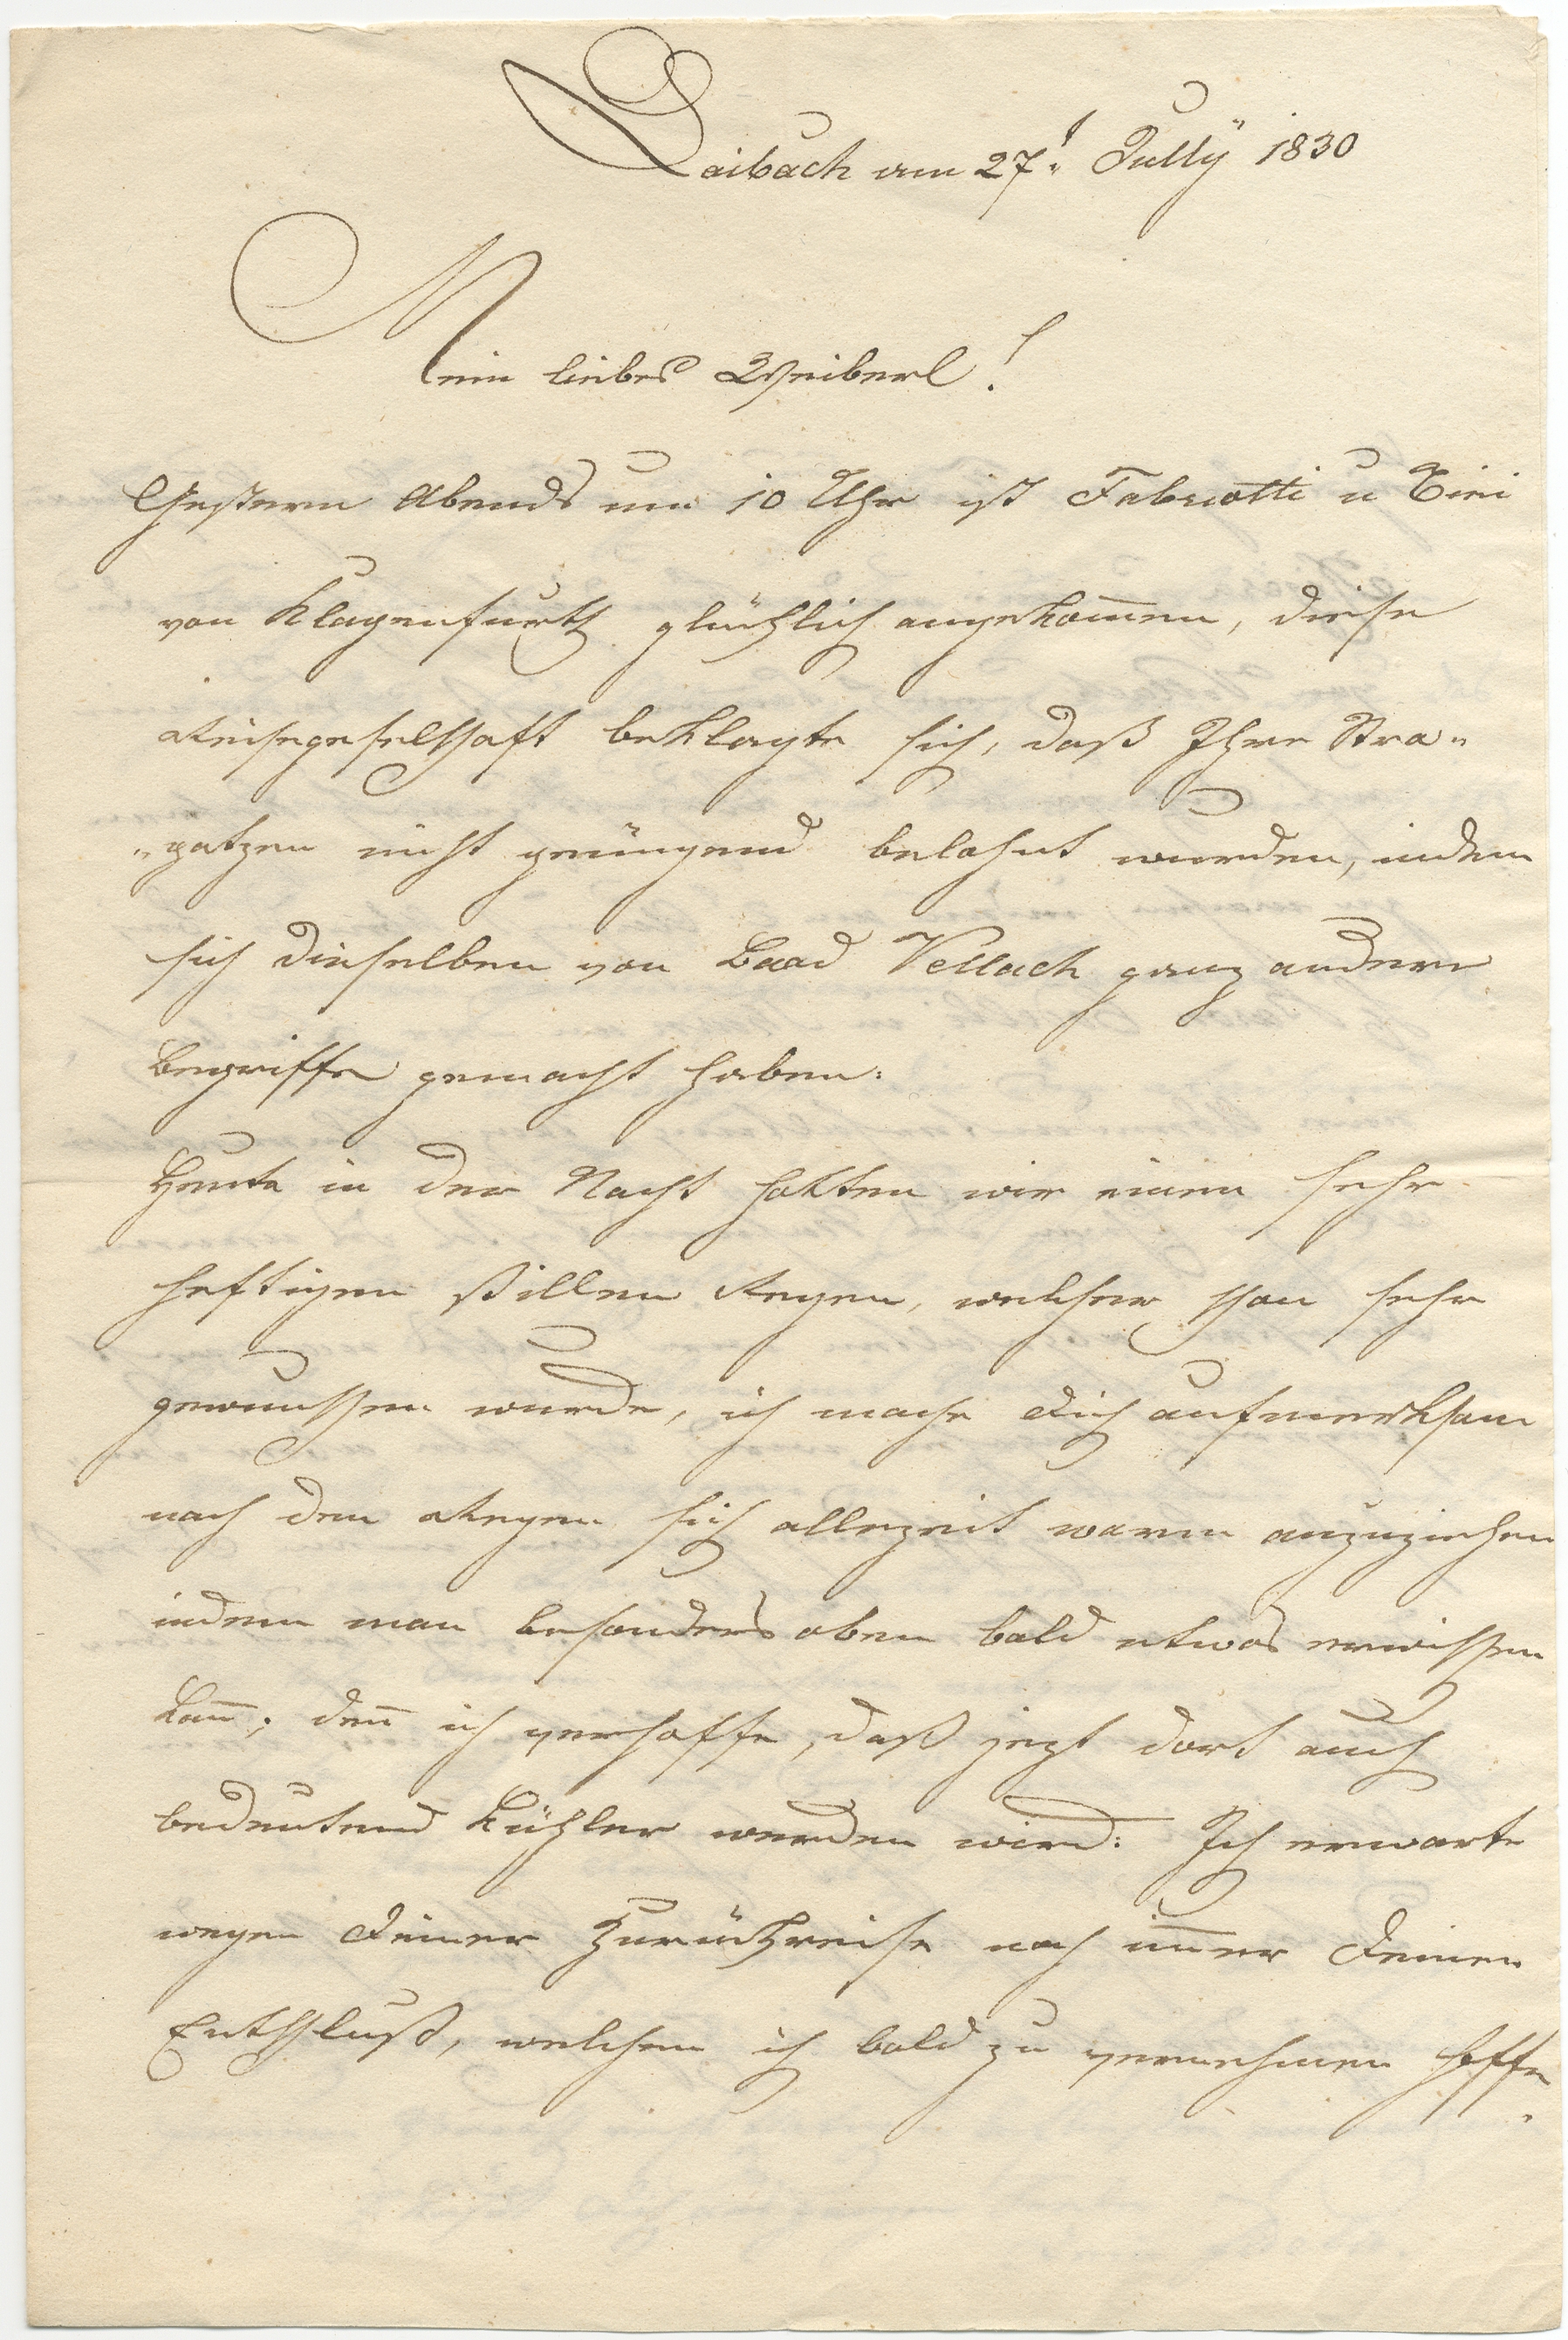 Laibach am 27t July 1830
Mein liebes Weiberl!
Gestern Abends um 10 Uhr ist Fabriotti u Tini
von Klagenfurth glücklich angekom̄en, diese
Reisegeselschaft beklagte sich, daß Ihre Stra„
„patzen nicht genügend belohnt wurden, indem
sich dieselben von Baad Vellach ganz andere
Begriffe gemacht haben.
Heute in der Nacht hatten wir einen sehr
heftigen stillen Regen, welcher schon sehr
gewunschen wurde, ich mache Dich aufmerksam
nach dem Regen sich allezeit warm anzuziehen
indem man besonders oben bald etwas erwischen
kan̄; den̄ ich verhoffe, daß jezt dort auch
bedeutend kühler werden wird. Ich erwarte
wegen Deiner Zurückreise noch im̄er Deinen
Entschluß, welchen ich bald zu vernehmen hoffe.